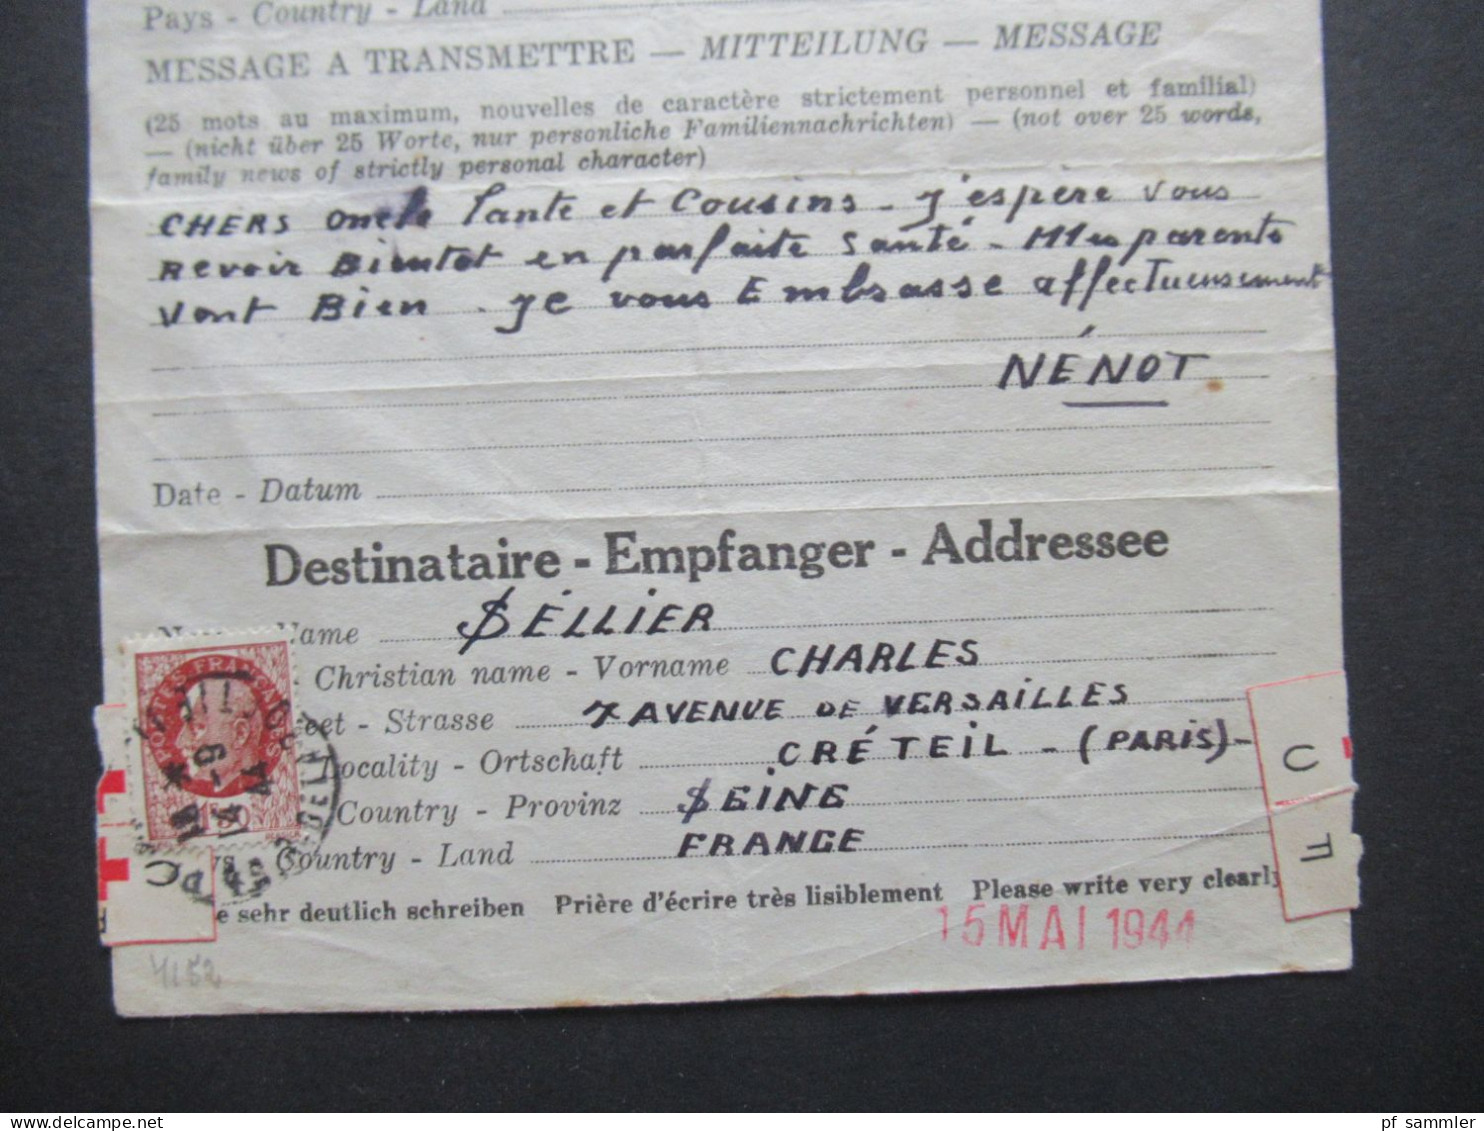 Pays - Country - Land
MESSAGE A TRANSMETTRE — MITTEILUNG — MESSAGE
(25 mots au maximum, nouvelles de caractère strictement personnel et familial)
— (nicht über 25 Worte, nur personliche Familiennachrichten) — (not over 25 words,
family news of strictly personal character)
CHERS oncle Tante et Cousins - J'espère vous
Revoir Bientot en parfaite santé - Mes parents
vont Bien - Je vous Embrasse affectueusement
NÉNOT
Date - Datum
Destinataire - Empfanger - Addressee
Name SÉLLIER
Christian name - Vorname CHARLES
Strasse 7 AVENUE DE VERSAILLES
Locality - Ortschaft CRÉTEIL - (PARIS) -
Country - Provinz SEINE
Country - Land FRANCE
sehr deutlich schreiben Prière d'écrire très lisiblement Please write very clearly
15 MAI 1944
POSTES FRANÇAISES
1F50
C
F
C
4152
pf_sammler